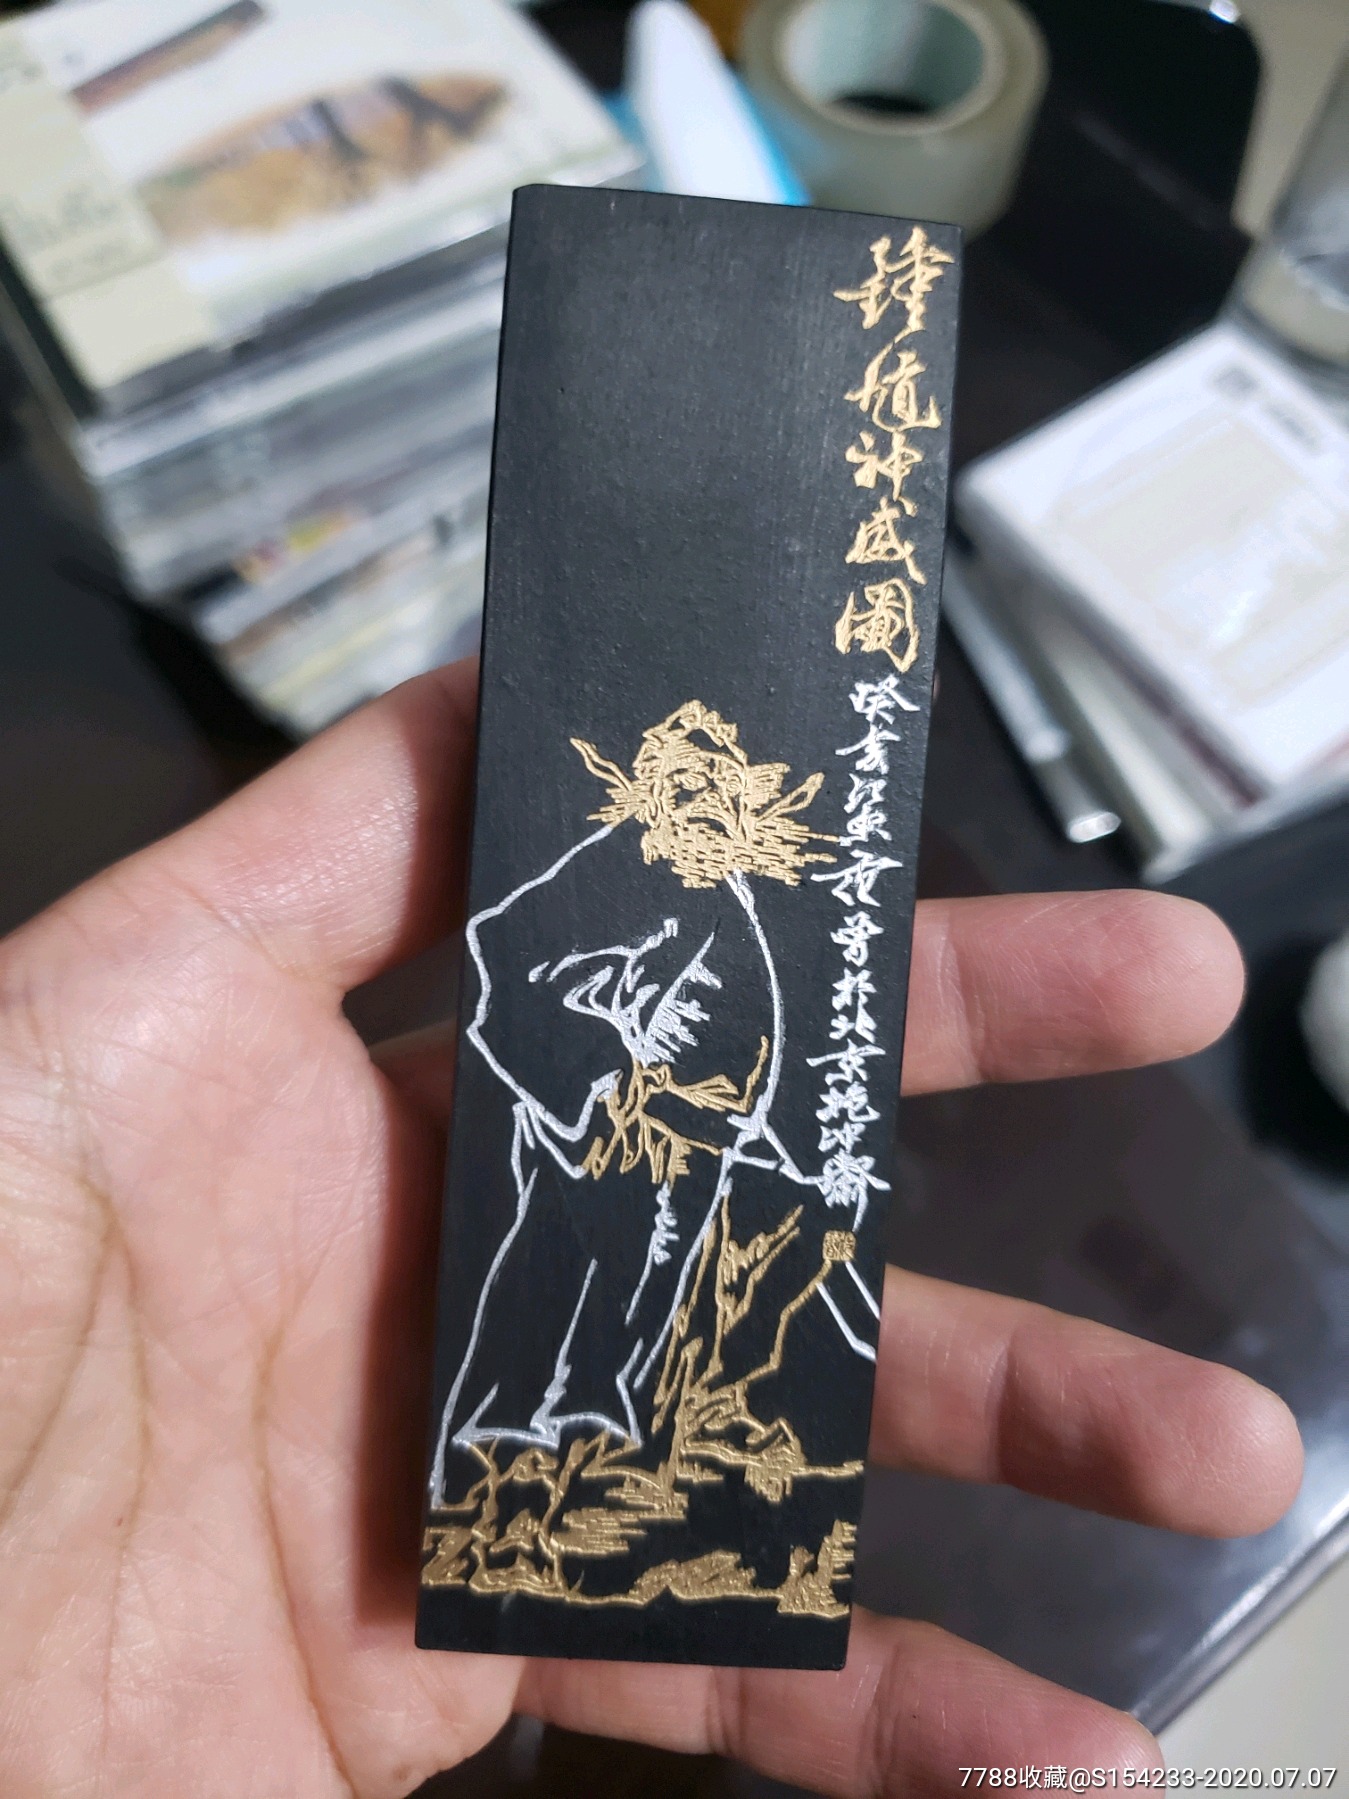 鍾馗神威圖
癸亥江東范曾於北京抱沖齋
7788收藏@S154233-2020.07.07